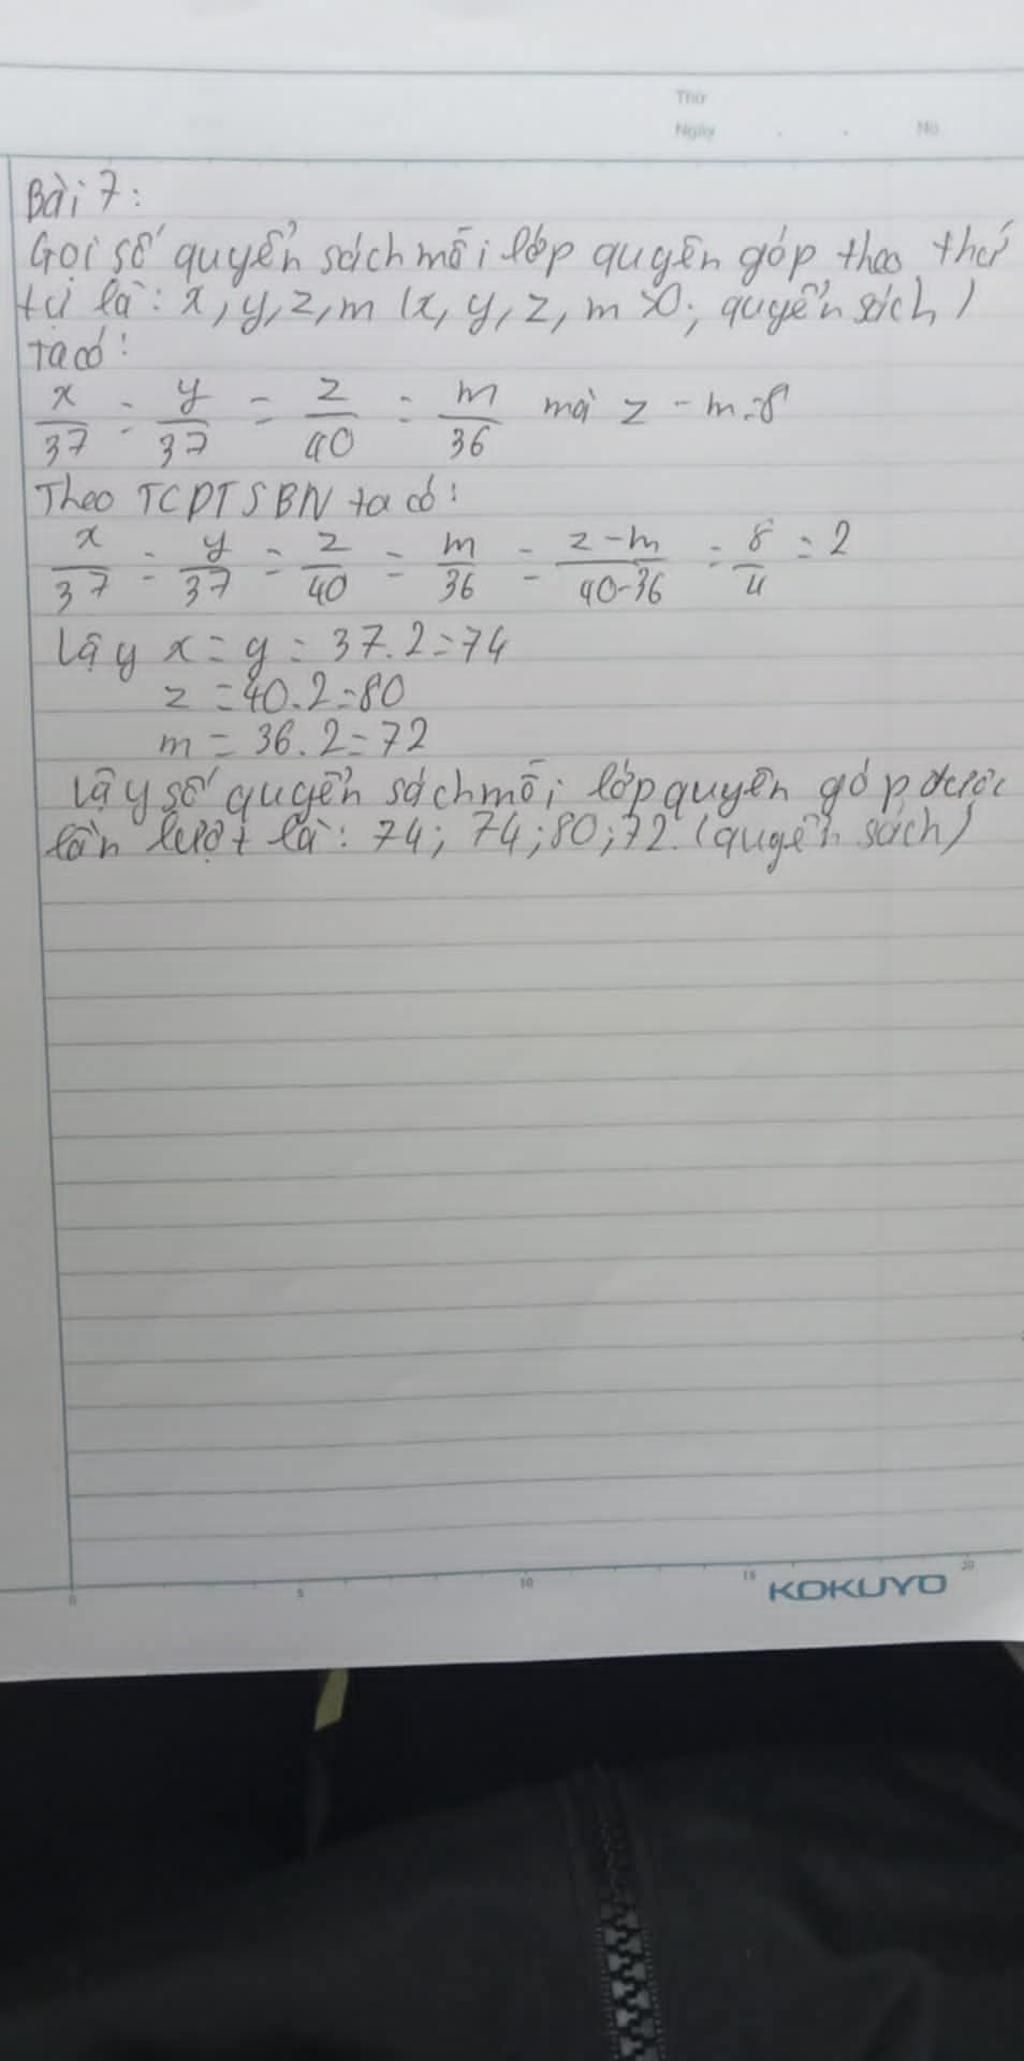 Thứ
Ngày . . No
Bài 7:
Gọi số quyển sách mỗi lớp quyên góp theo thứ
tự là: x, y, z, m (x, y, z, m >0; quyển sách)
Ta có:
x/37 = y/37 = z/40 = m/36 mà z - m = 8
Theo TCDTSBN ta có:
x/37 = y/37 = z/40 = m/36 = z-m/40-36 = 8/4 = 2
Vậy x = y = 37.2=74
z = 40.2=80
m = 36.2=72
Vậy số quyển sách mỗi lớp quyên góp được
lần lượt là: 74; 74; 80; 72. (quyển sách)
0 5 10 15 20
KOKUYO